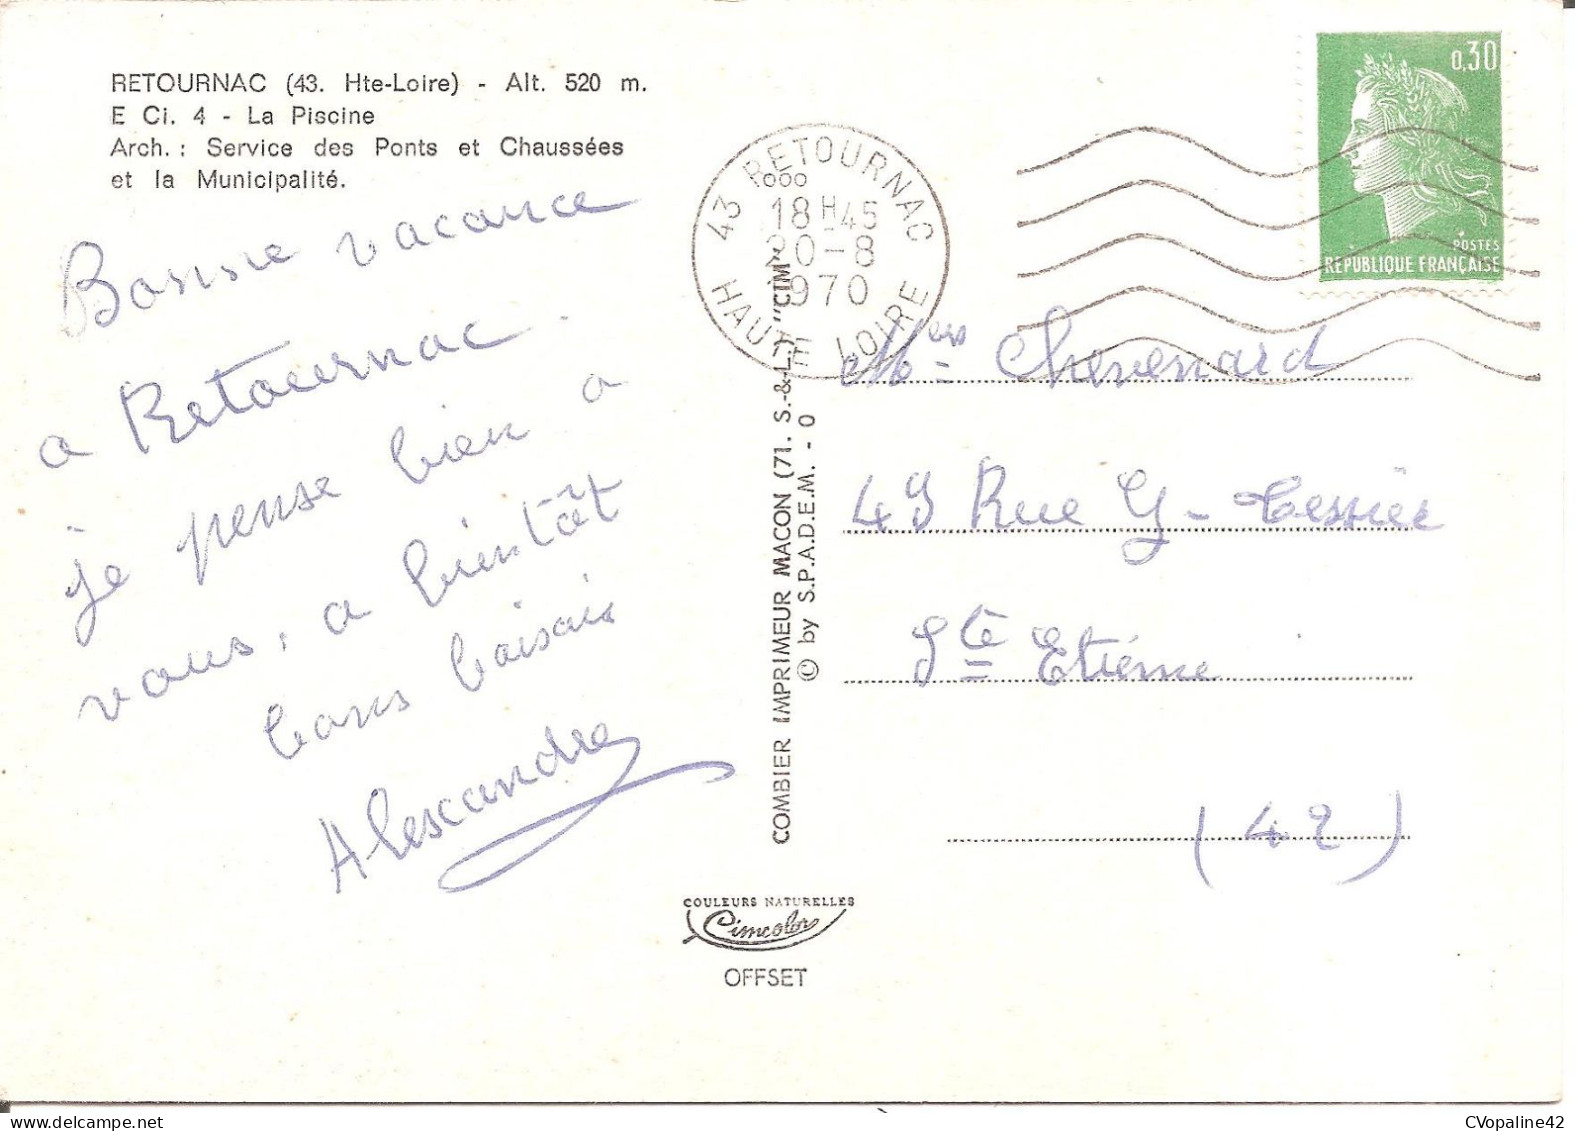 RETOURNAC (43. Hte-Loire) - Alt. 520 m.
E Ci. 4 - La Piscine
Arch. : Service des Ponts et Chaussées
et la Municipalité.
Bonne vacance
a Retournac.
je pense bien a
vous, a bientôt
bons baisais
Alexandre
43 RETOURNAC
18H45
20-8
1970
HAUTE LOIRE
0,30
POSTES
RÉPUBLIQUE FRANÇAISE
COMBIER IMPRIMEUR MACON (71. S.-&-L.) "CIM"
© by S.P.A.D.E.M. - 0
Chevenard
49 Rue G - Tessier
Ste Etiénne
(42)
COULEURS NATURELLES
Cimcolor
OFFSET
CVopaline42